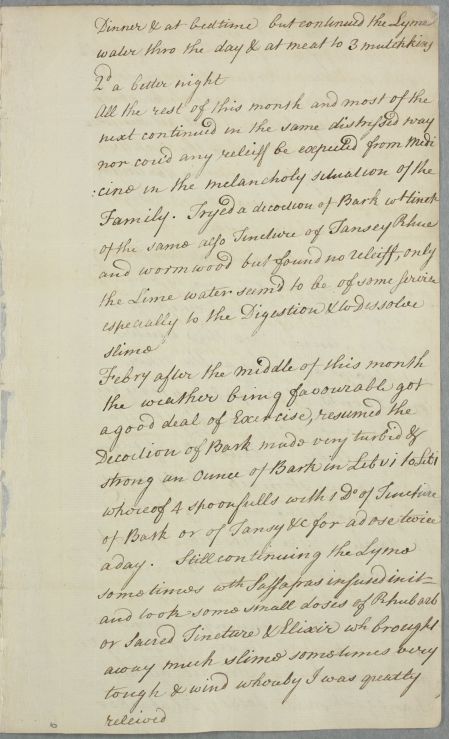 Dinner & at bedtime but continued the Lyme
water thro the day & at meat to 3 mutchkins
2d a better night
All the rest of this month and most of the
next continued in the same distressed way
nor coud any releiff be expected from Medi
:cine in the melancholy situation of the
Family. Tryed a decoction of Bark wt tinct
of the same also Tincture of Tansey Rhue
and wormwood but found no releiff, only
the Lime water seemd to be of some service
especially to the Digestion & to Dissolve
slime
Febry after the middle of this month
the weather being favourable got
a good deal of Exercise, resumed the
Decoction of Bark made very turbid &
strong an Ounce of Bark in Lib vi to Lib i
whereof 4 spoonfulls with 1 Do of Tincture
of Bark or of Tansy &c for a dose twice
a day. Still continuing the Lyme
sometimes wth Sassafras infused in it
and took some small doses of Rhubarb
or Sacred Tincture & Elixir wh brought
away much slime sometimes very
tough & wind whereby I was greatly
releived
6